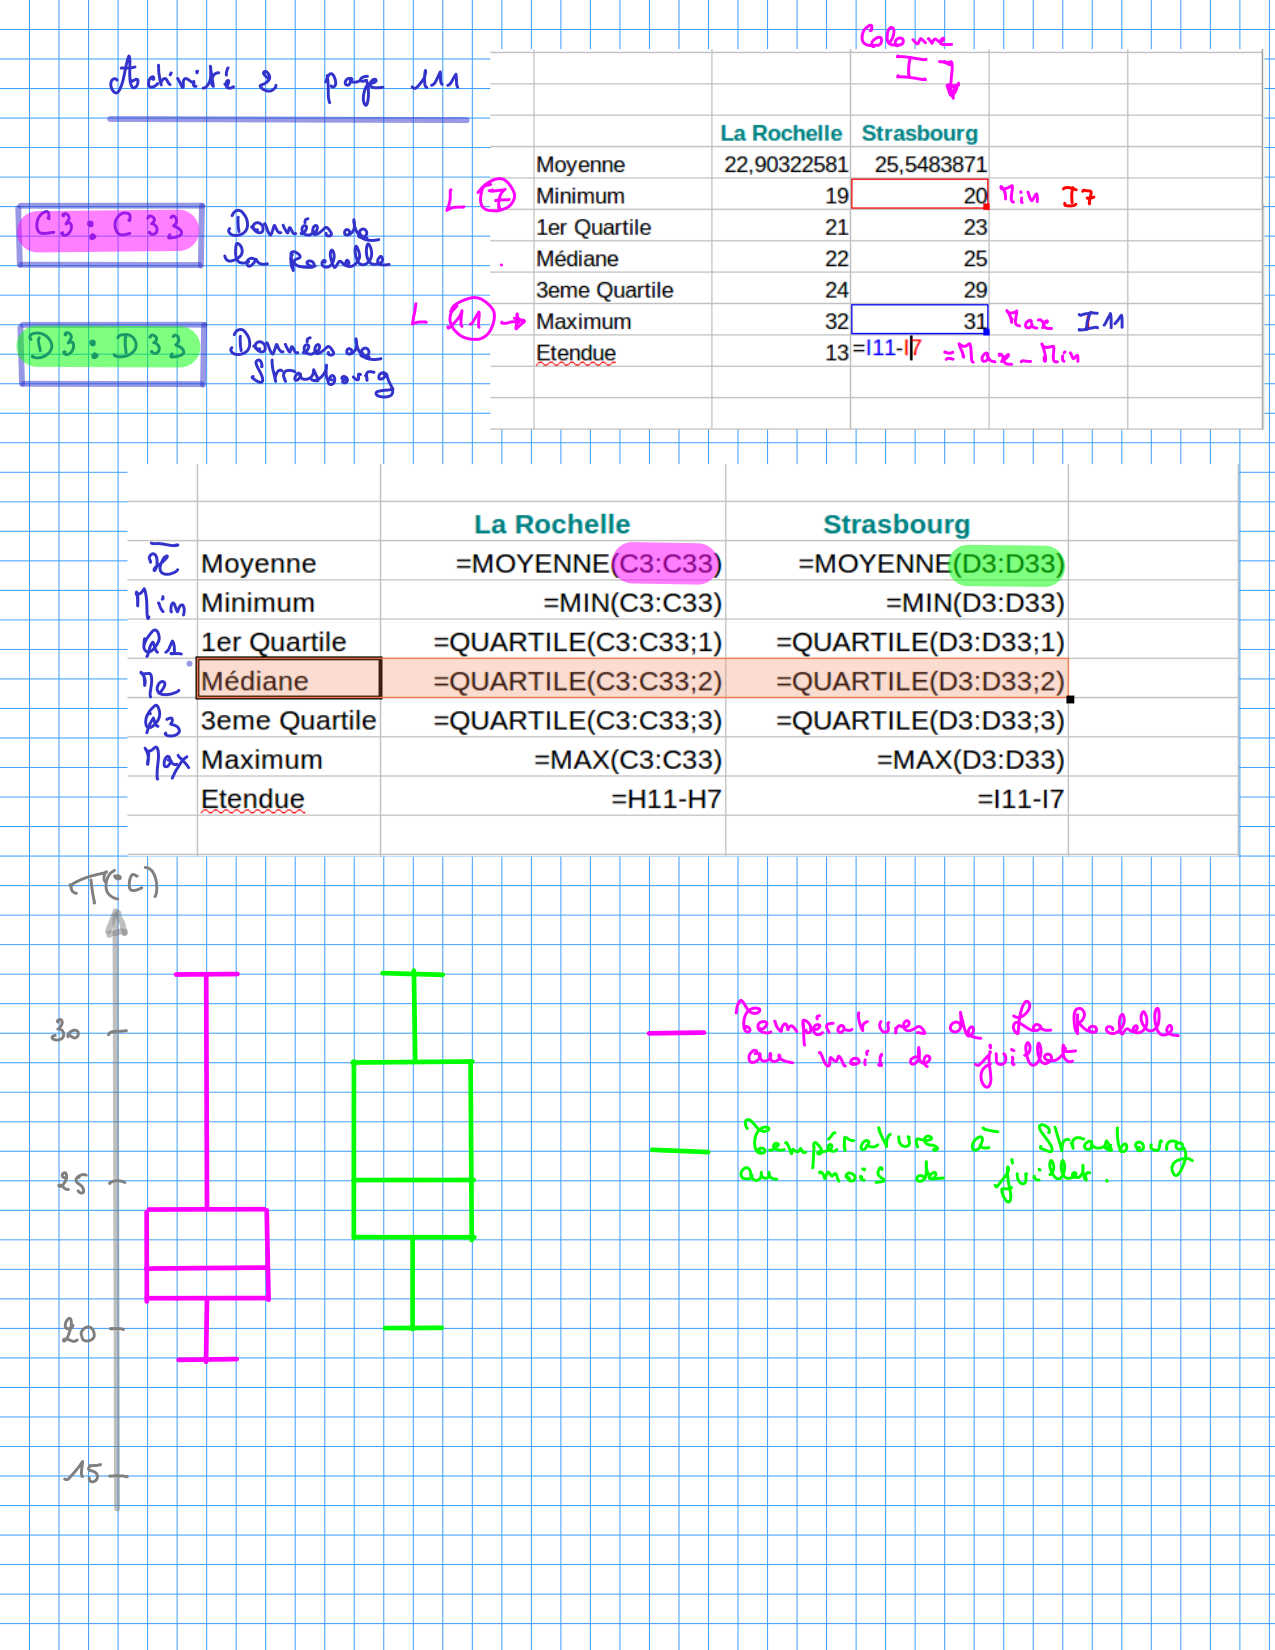 Activité 2 page 111
Colonne
I
La Rochelle Strasbourg
Moyenne 22,90322581 25,5483871
L 7 Minimum 19 20 Min I7
1er Quartile 21 23
Médiane 22 25
3eme Quartile 24 29
L 11 → Maximum 32 31 Max I11
Etendue 13 =I11-I7 =Max-Min
C3:C33 Données de
la Rochelle
D3:D33 Données de
Strasbourg
La Rochelle Strasbourg
x̄ Moyenne =MOYENNE(C3:C33) =MOYENNE(D3:D33)
Min Minimum =MIN(C3:C33) =MIN(D3:D33)
Q1 1er Quartile =QUARTILE(C3:C33;1) =QUARTILE(D3:D33;1)
Me Médiane =QUARTILE(C3:C33;2) =QUARTILE(D3:D33;2)
Q3 3eme Quartile =QUARTILE(C3:C33;3) =QUARTILE(D3:D33;3)
Max Maximum =MAX(C3:C33) =MAX(D3:D33)
Etendue =H11-H7 =I11-I7
T(°C)
30
25
20
15
Températures de La Rochelle
au mois de juillet
Températures à Strasbourg
au mois de juillet.